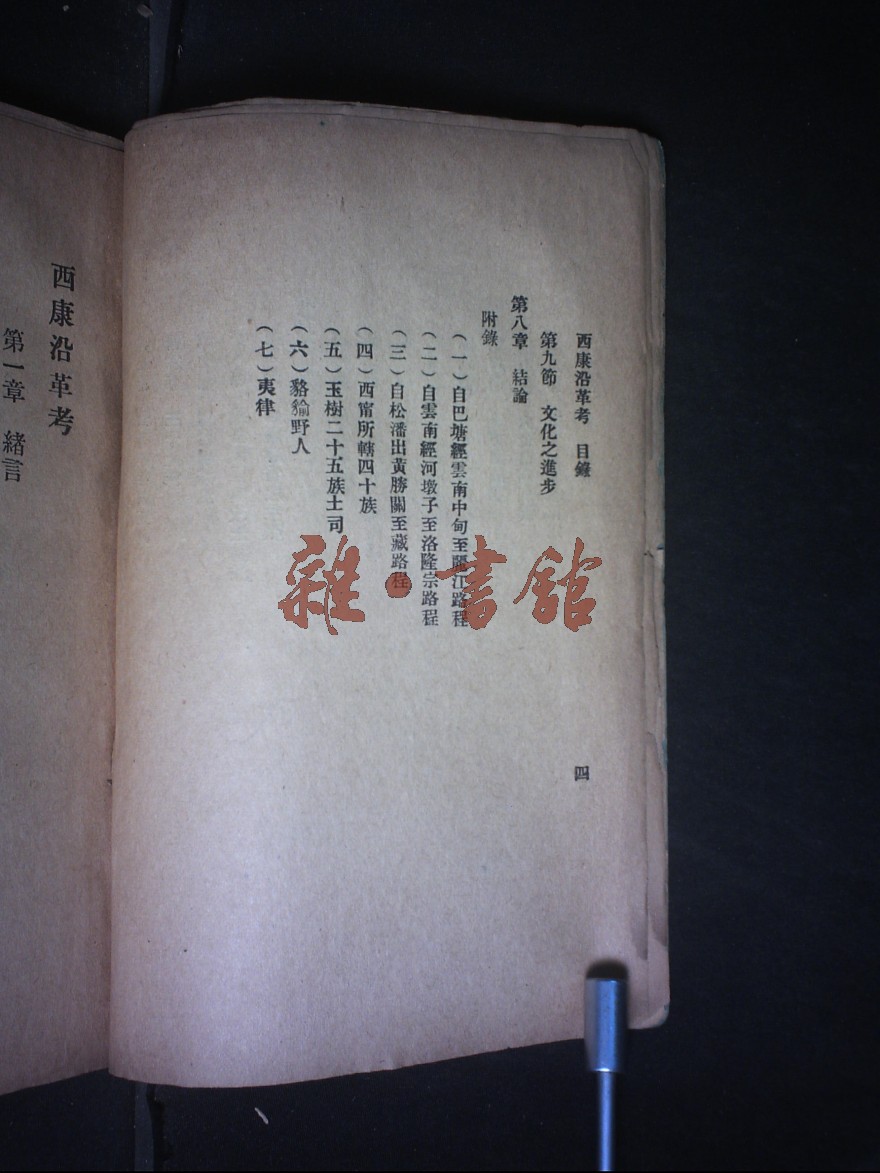 西康沿革考　目錄
第九節　文化之進步
第八章　結論
附錄
（一）自巴塘經雲南中甸至麗江路程
（二）自雲南經河墩子至洛隆宗路程
（三）自松潘出黃勝關至藏路程
（四）西甯所轄四十族
（五）玉樹二十五族土司
（六）貉㺄野人
（七）夷律
四
西康沿革考
第一章　緒言
雜·書館